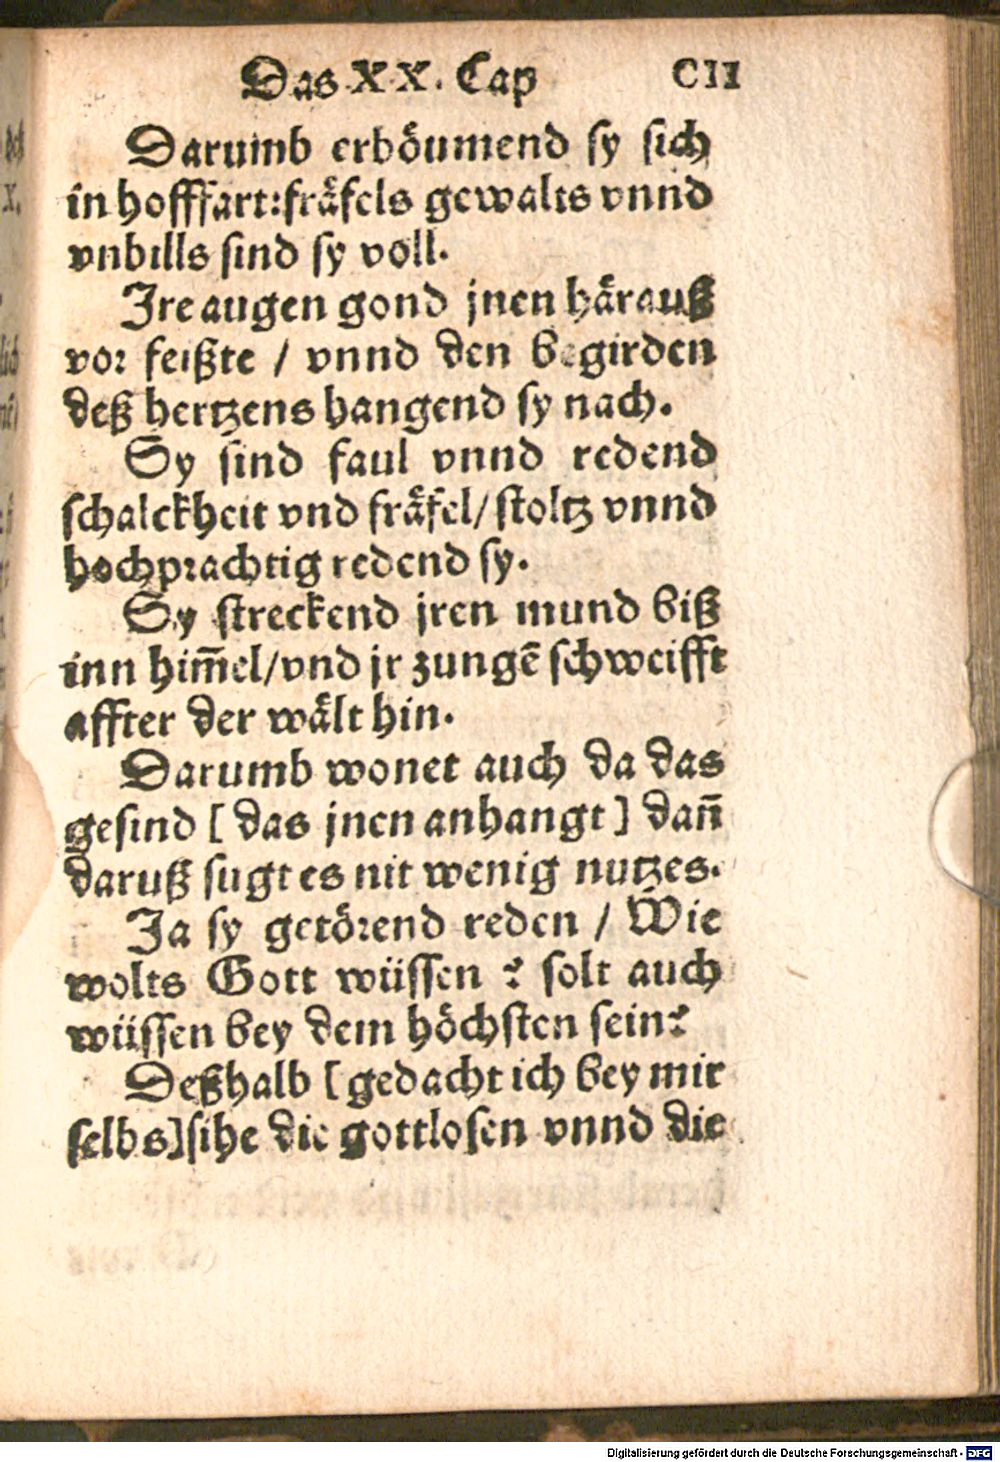 Das XX. Cap CII
Darumb erböumend sy sich
in hofffart: fräfels gewalts vnnd
vnbills sind sy voll.
Ire augen gond jnen härauß
vor feißte / vnnd den begirden
deß hertzens hangend sy nach.
Sy sind faul vnnd redend
schalckheit vnd fräfel / stoltz vnnd
hochprachtig redend sy.
Sy streckend jren mund biß
inn him̃el / vnd jr zungẽ schweifft
affter der wält hin.
Darumb wonet auch da das
gesind [ das jnen anhangt ] dañ
daruß sugt es nit wenig nutzes.
Ja sy getörend reden / Wie
wolts Gott wüssen ? solt auch
wüssen bey dem höchsten sein?
Deßhalb [gedacht ich bey mir
selbs] sihe die gottlosen vnnd die
Digitalisierung gefördert durch die Deutsche Forschungsgemeinschaft - DFG